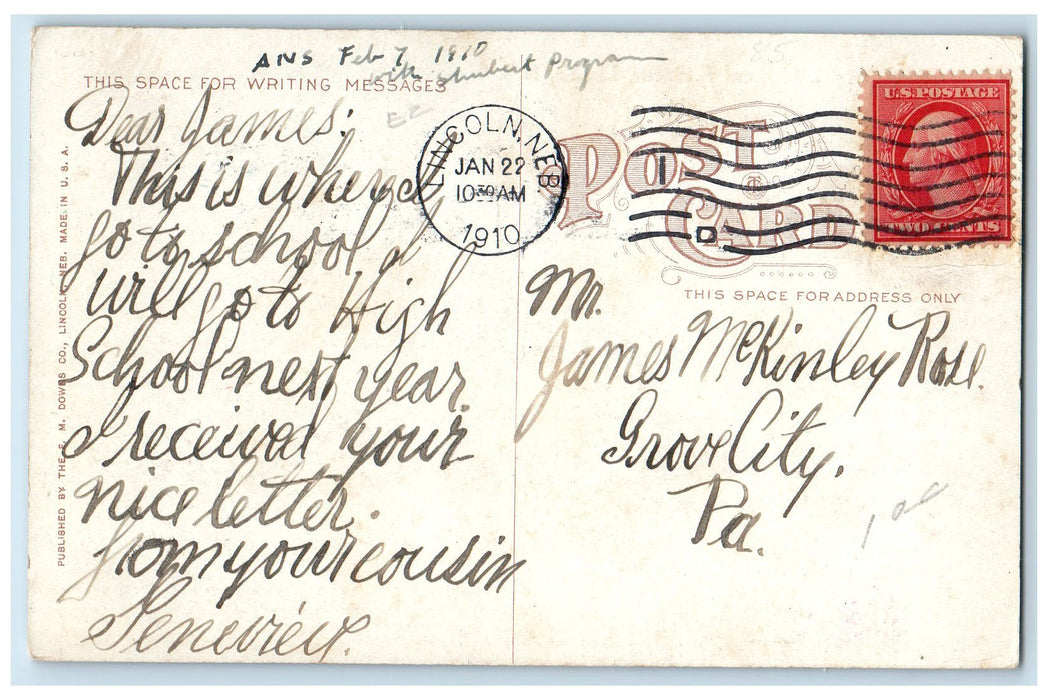 ANS Feb 7 1910
with Shubert Program
THIS SPACE FOR WRITING MESSAGES
Dear James:
This is where I
go to school I
will go to High
School next year.
I received your
nice letter.
from your cousin
Genevieve.
PUBLISHED BY THE F. M. DOWNS CO., LINCOLN, NEB. MADE IN U.S.A.
LINCOLN, NEB.
JAN 22
10 30 AM
1910
1
D
POST CARD
U.S. POSTAGE
TWO CENTS
THIS SPACE FOR ADDRESS ONLY
Mr.
James McKinley Rose.
Grove City,
Pa.